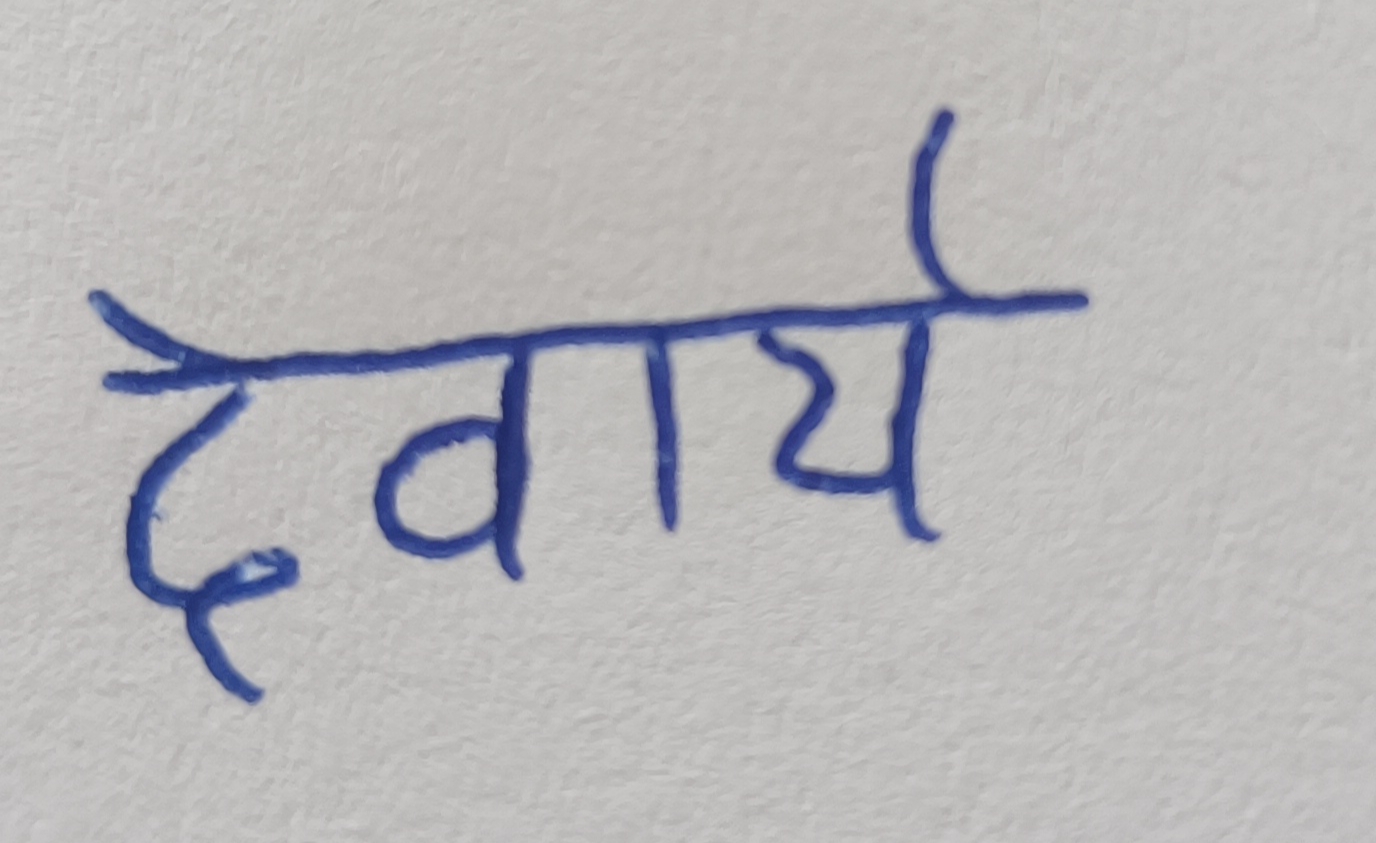 देवार्य